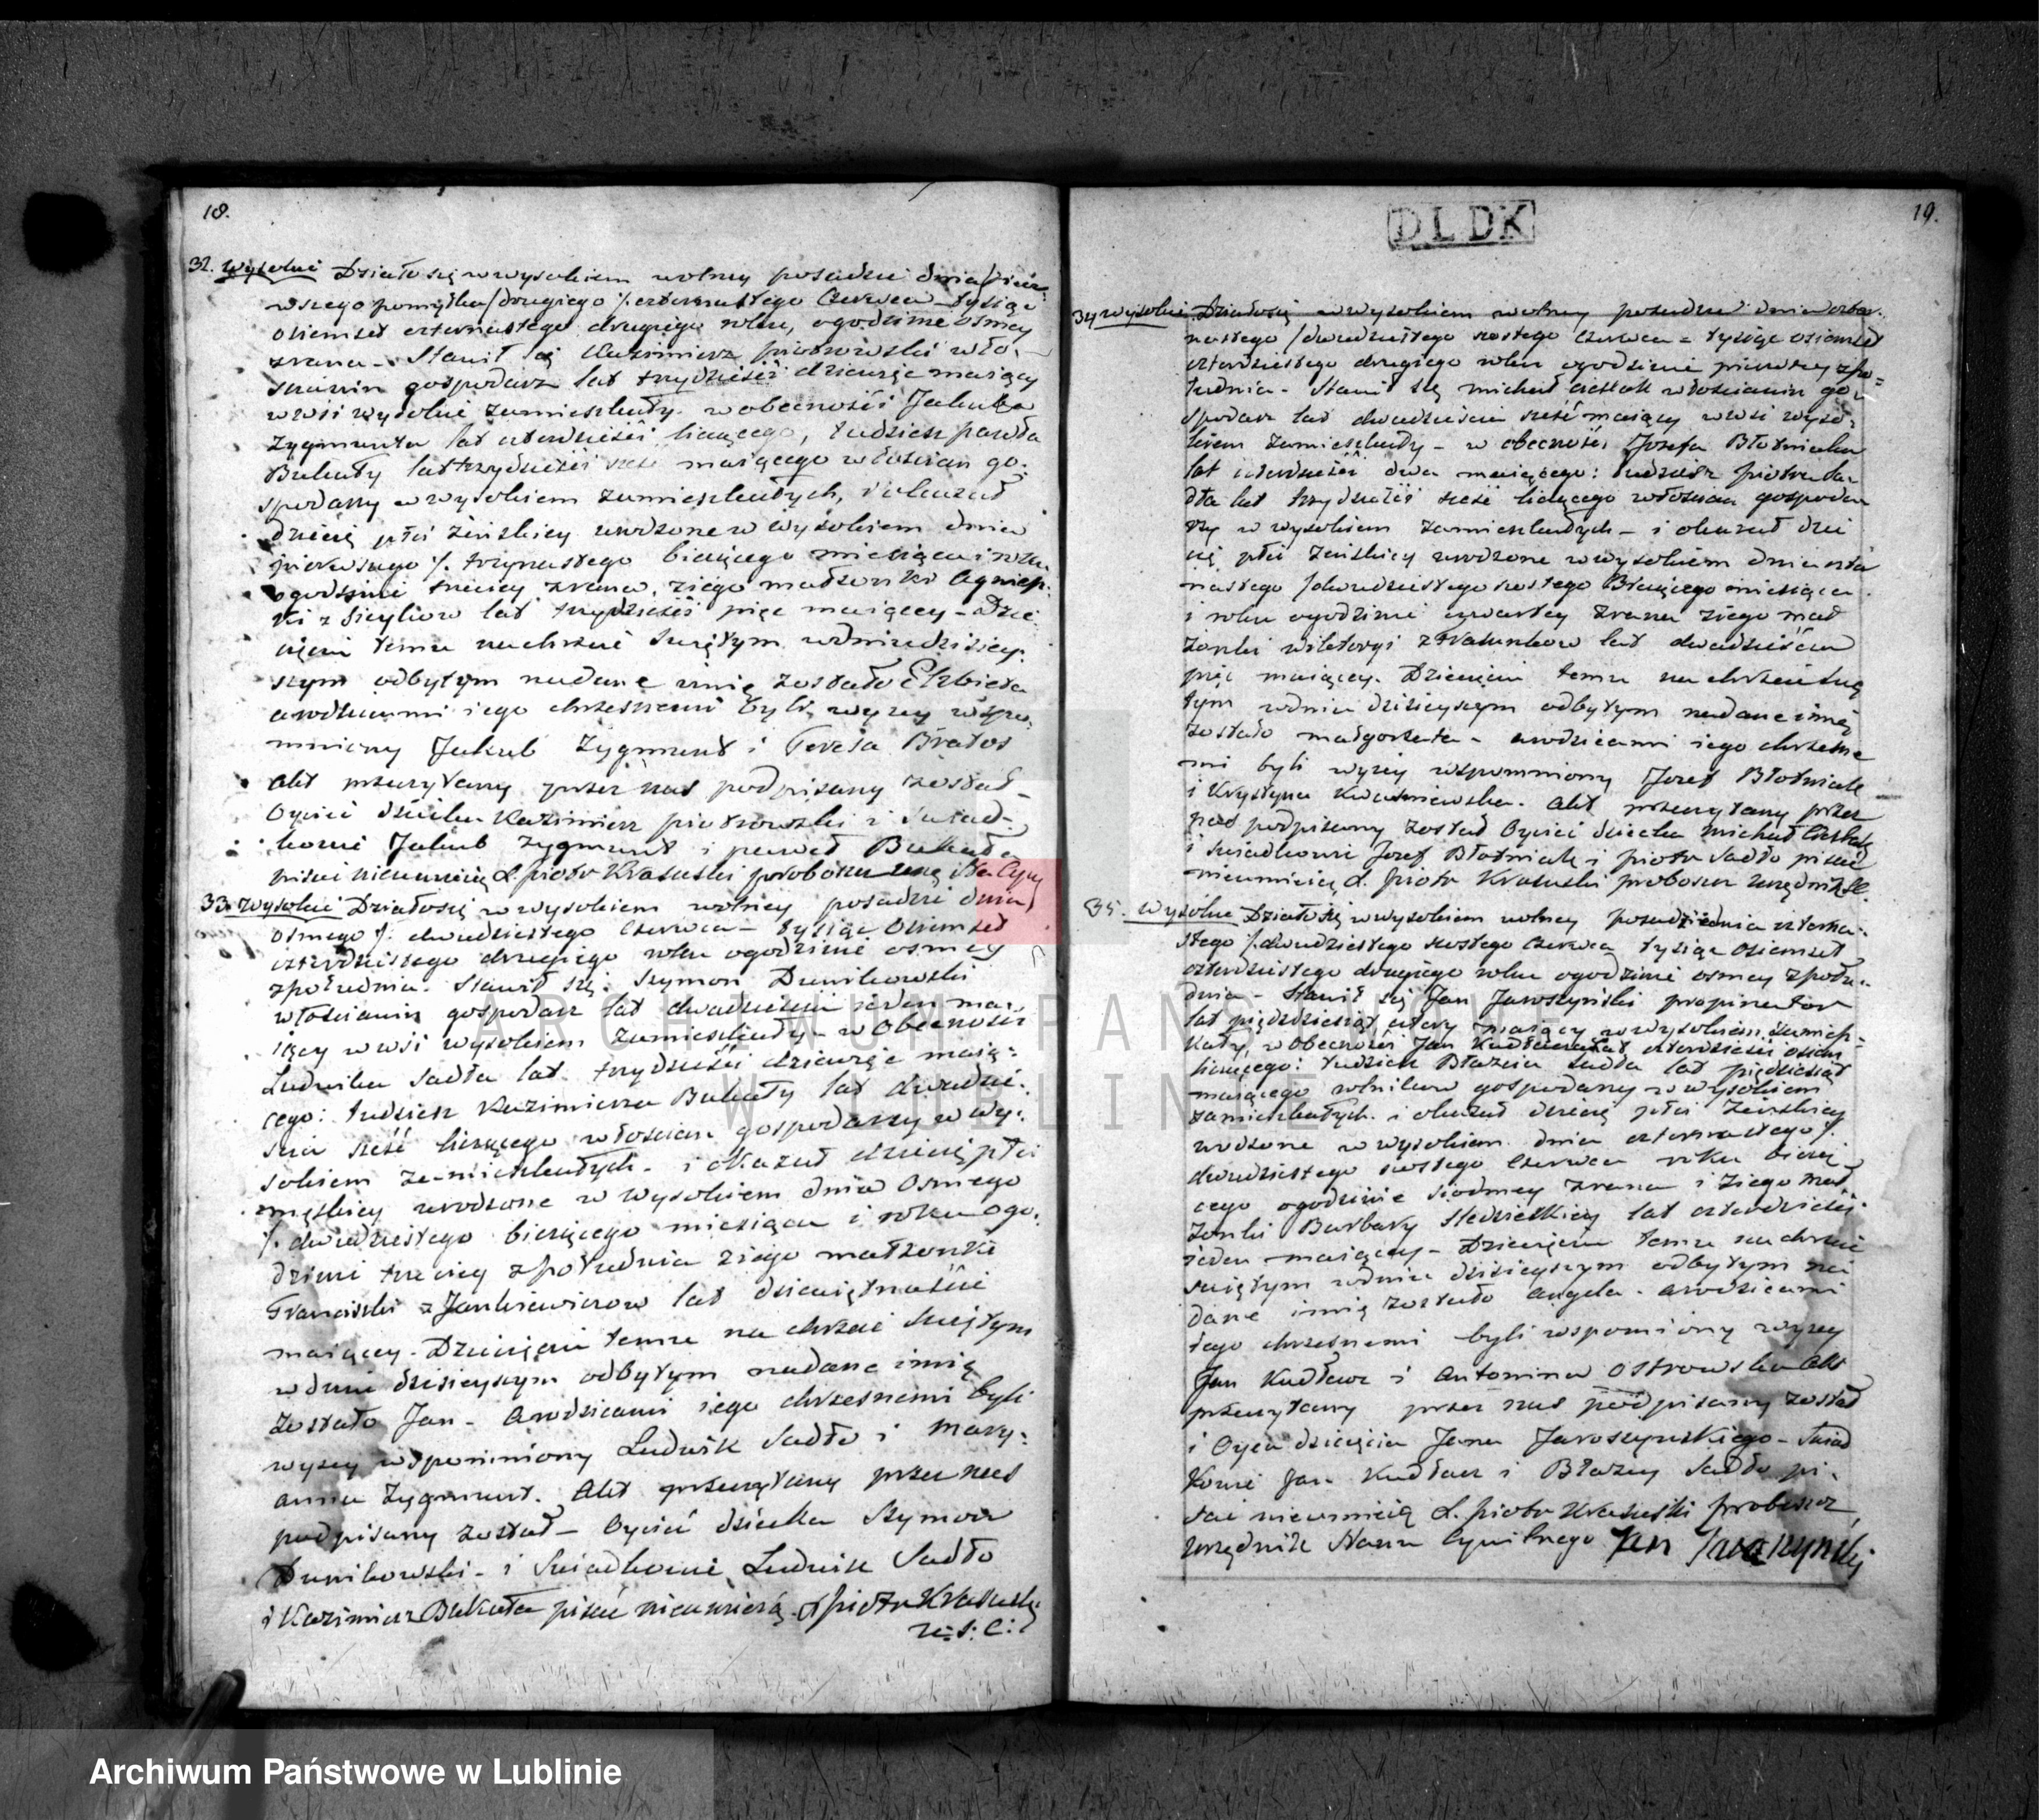 18.
32. Wysokie Działo się w wysokiem wolney posadzie dnia pier
wszego pomyłka/drugiego /. czternastego Czerwca tysiąc
ośmset czterdziestego drugiego roku, o godzinie ósmey
zrana - Stawił się Kazimierz Piotrowski wło-
scianin gospodarz lat trzydzieści dziewięć maiący
w wsi wysokie zamieszkały. w obecności Jakuba
Zygmunta lat czterdzieści liczącego, tudzież Pawła
Bukały lat trzydzieści sześć maiącego włościan go-
spodarzy w wysokiem zamieszkałych, i okazał
dziecię płci żeńskiey urodzone w wysokiem dnia
pierwszego /. trzynastego bieżącego miesiąca i roku
o godzinie trzeciey zrana, z iego małżonki Agniesz-
ki z lat trzydzieści pięć maiącey - Dzie
cięciu temu na chrzcie świętym w dniu dzisiey-
szym odbytym nadane imię zostało Elzbieta
a rodzicami iego chrzestnemi byli wyżey wspo-
mniony Jakub Zygmunt i Teresa Bratos
Akt przeczytany przez nas podpisany został -
Oyciec dziecka Kazimierz Piotrowski i świad-
kowie Jakub Zygmunt i Paweł Bukała
pisać nieumieią X. Piotr Krasuski proboszcz urzę Sta Cyw
33. Wysokie Działo się w wysokiem wolney posadzie dnia
osmego /. dwudziestego Czerwca - tysiąc ośmset
czterdziestego drugiego roku o godzinie osmey
zpołudnia. Stawił się Szymon Dunikowski
włościanin gospodarz lat dwadzieścia ieden ma-
iący w wsi wysokiem zamieszkały - w obecności
Ludwika Sadła lat trzydzieści dziewięć maią-
cego: tudzież Kazimierza Bukały lat dwadzie-
ścia sześć liczącego włościan gospodarzy w wy-
sokiem zamieszkałych - i okazał dziecię płci
męzkiey urodzone w wysokiem dnia osmego
/. dwudziestego bieżącego miesiąca i roku o go-
dzinie trzeciey zpołudnia z iego małżonki
Franciszki z Jankiewiczow lat dziewiętnaście
maiącey - Dziecięciu temu na chrzcie świętym
w dniu dzisieyszym odbytym nadane imię
zostało Jan - a rodzicami iego chrzestnemi byli
wyżey wspomniony Ludwik Sadło i Mary-
anna Zygmunt. Akt przeczytany przez nas
podpisany został - Oyciec dziecka Szymon
Dunikowski - i świadkowie Ludwik Sadło
i Kazimierz Bukała pisać nieumieią - X Piotr Krasuski
u: S: C:
DLDK
19.
34 wysokie Działo się w wysokiem wolney posadzie dnia czter-
nastego /dwudziestego szóstego Czerwca - tysiąc ośmset
czterdziestego drugiego roku o godzinie pierwszey zpo-
łudnia - Stawił się Michał Cieślak włościanin go-
spodarz lat dwadzieścia sześć maiący w wsi wyso-
kiem zamieszkały - w obecności Jozefa Błotniaka
lat czterdzieści dwa maiącego: tudzież Piotra Sa-
dła lat trzydzieści sześć liczącego włościan gospoda
rzy w wysokiem zamieszkałych - i okazał dzie
cię płci żeńskiey urodzone w wysokiem dnia czter
nastego /dwudziestego szóstego bieżącego miesiąca
i roku o godzinie czwartey zrana z iego mał
żonki Wiktoryi z lat dwadzieścia
pięć maiącey. Dziecięciu temu na chrzcie świę
tym w dniu dzisieyszym odbytym nadane imię
zostało Małgorzata - a rodzicami iego chrzestne
mi byli wyżey wspomniony Jozef Błotniak
i Krystyna Kwaśniewska. Akt przeczytany przez
nas podpisany został Oyciec dziecka Michał Cieślak
i świadkowie Jozef Błotniak i Piotr Sadło pisać
nieumieią X. Piotr Krasuski proboszcz urzędnik SC.
35. Wysokie Działo się w wysokiem wolney posadzie dnia czterna-
stego /. dwudziestego szóstego Czerwca tysiąc ośmset
czterdziestego drugiego roku o godzinie osmey zpołu-
dnia - Stawił się Jan Jaroszyński propinator
lat pięćdziesiąt cztery maiący w wysokiem zamiesz-
kały, w obecności Jan Kudłacz lat czterdzieści ośm
liczącego: tudzież Błażeia Sadła lat pięćdziesiąt
maiącego rolnikow gospodarzy w wysokiem
zamieszkałych. i okazał dziecię płci żeńskiey
urodzone w wysokiem dnia czternastego /.
dwudziestego szóstego Czerwca roku bieżą
cego o godzinie siodmey zrana i z iego mał
żonki Barbary Siedzielskiey lat czterdzieści
ieden maiącey - Dziecięciu temu na chrzcie
świętym w dniu dzisieyszym odbytym na
dane imię zostało Angela - a rodzicami
iego chrzestnemi byli wspomiony wyżey
Jan Kudłacz i Antonina Ostrowska Akt
przeczytany przez nas podpisany został
i Oyca dziecięcia Jana Jaroszyńskiego - świad
kowie Jan Kudłacz i Błażey Sadło pi-
sać nieumieią X. Piotr Krasuski proboszcz
urzędnik Stanu Cywilnego Jan Jaroszyński
ARCHIWUM PAŃSTWOWE
W LUBLINIE
Archiwum Państwowe w Lublinie